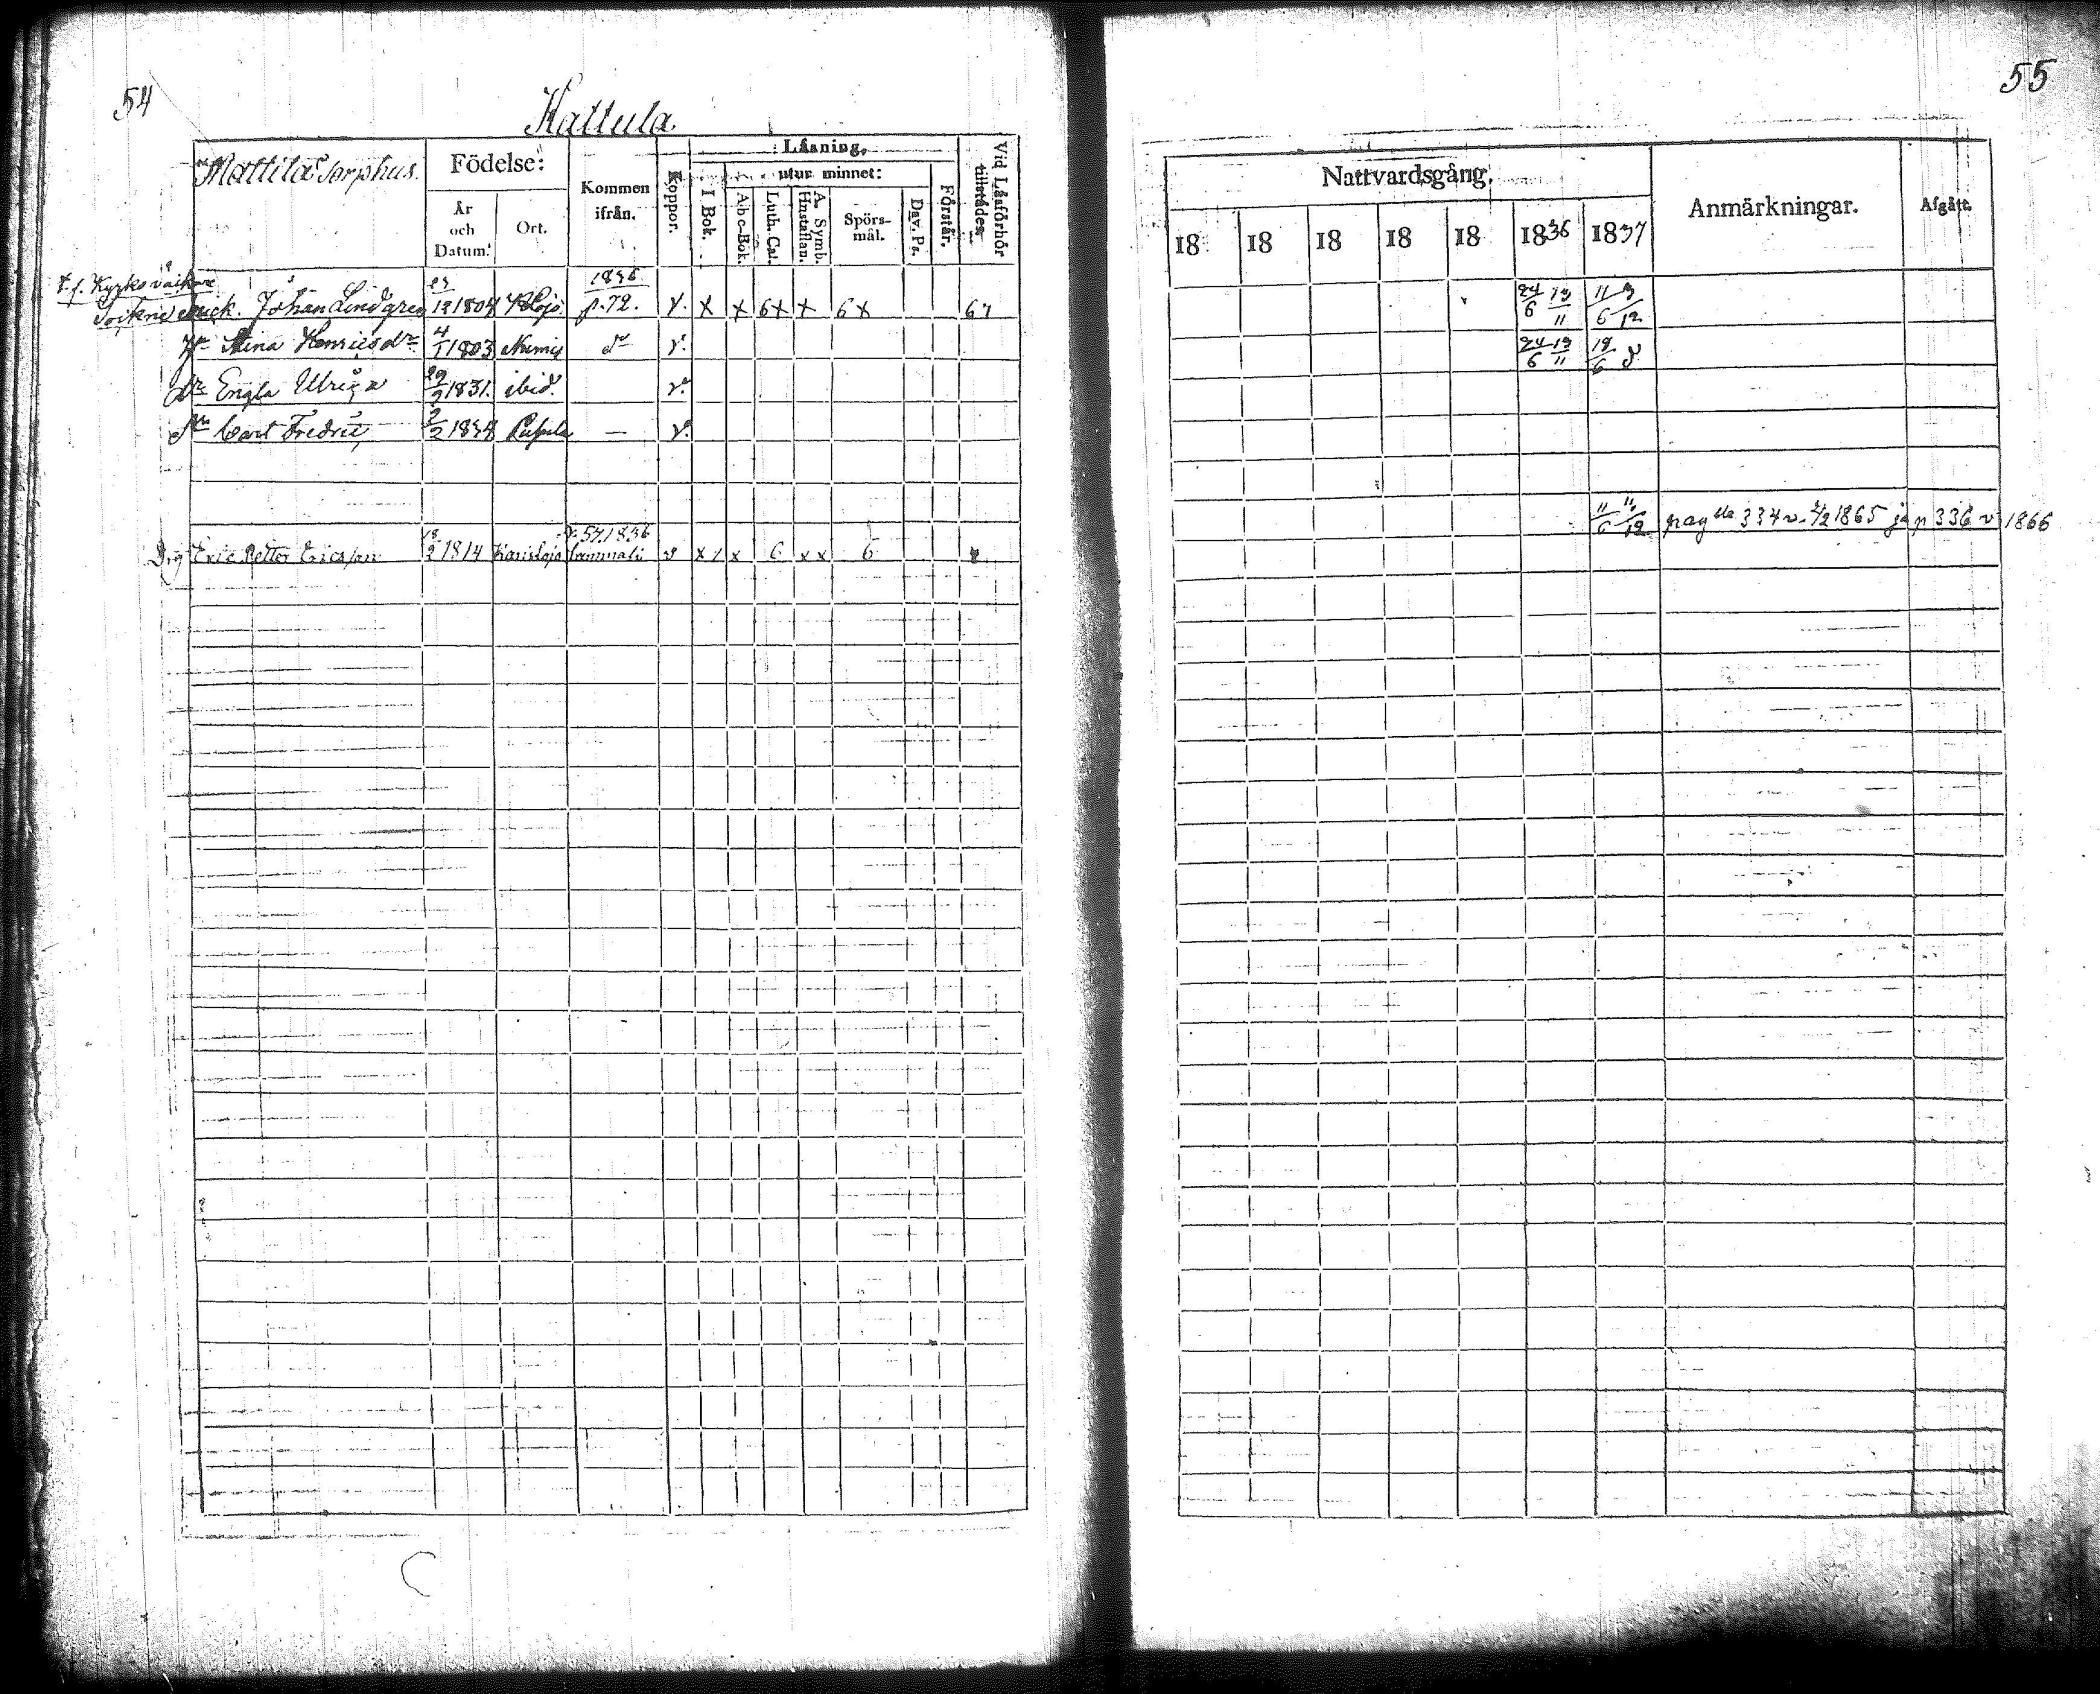 54
Kattula
Mattila Torphus
Födelse:
År och Datum.
Ort.
Kommen ifrån.
Koppor.
Läsning,
I Bok.
utur minnet:
Abc-Bok.
Luth. Cat.
A. Symb. Hustaflan.
Spörsmål.
Dav. Ps.
Förstår.
Vid Läsförhör tillstädes.
t.f. Kyrko väktare 1836
Johan Lindgren 12 1804 K Lojo p. 72. v. x x 6 x x 6 x 67
Stina Henricsdr 4/1 1803 Numis do v.
dr Engla Ulrica 1831. ibid. v.
Carl Fredric 1834 — v.
p. 57. 1836
Drg Eric Petter Ericsson 1814 Karislojo v x x x 6 x x 6
55
Nattvardsgång.
18 18 18 18 18 1836 1837
Anmärkningar.
Afgått.
24/6 13/11 11/6 3/12
24/6 13/11 18/6 d
11/6 11/12 pag 334 v. 1865 ja p 336 v 1866